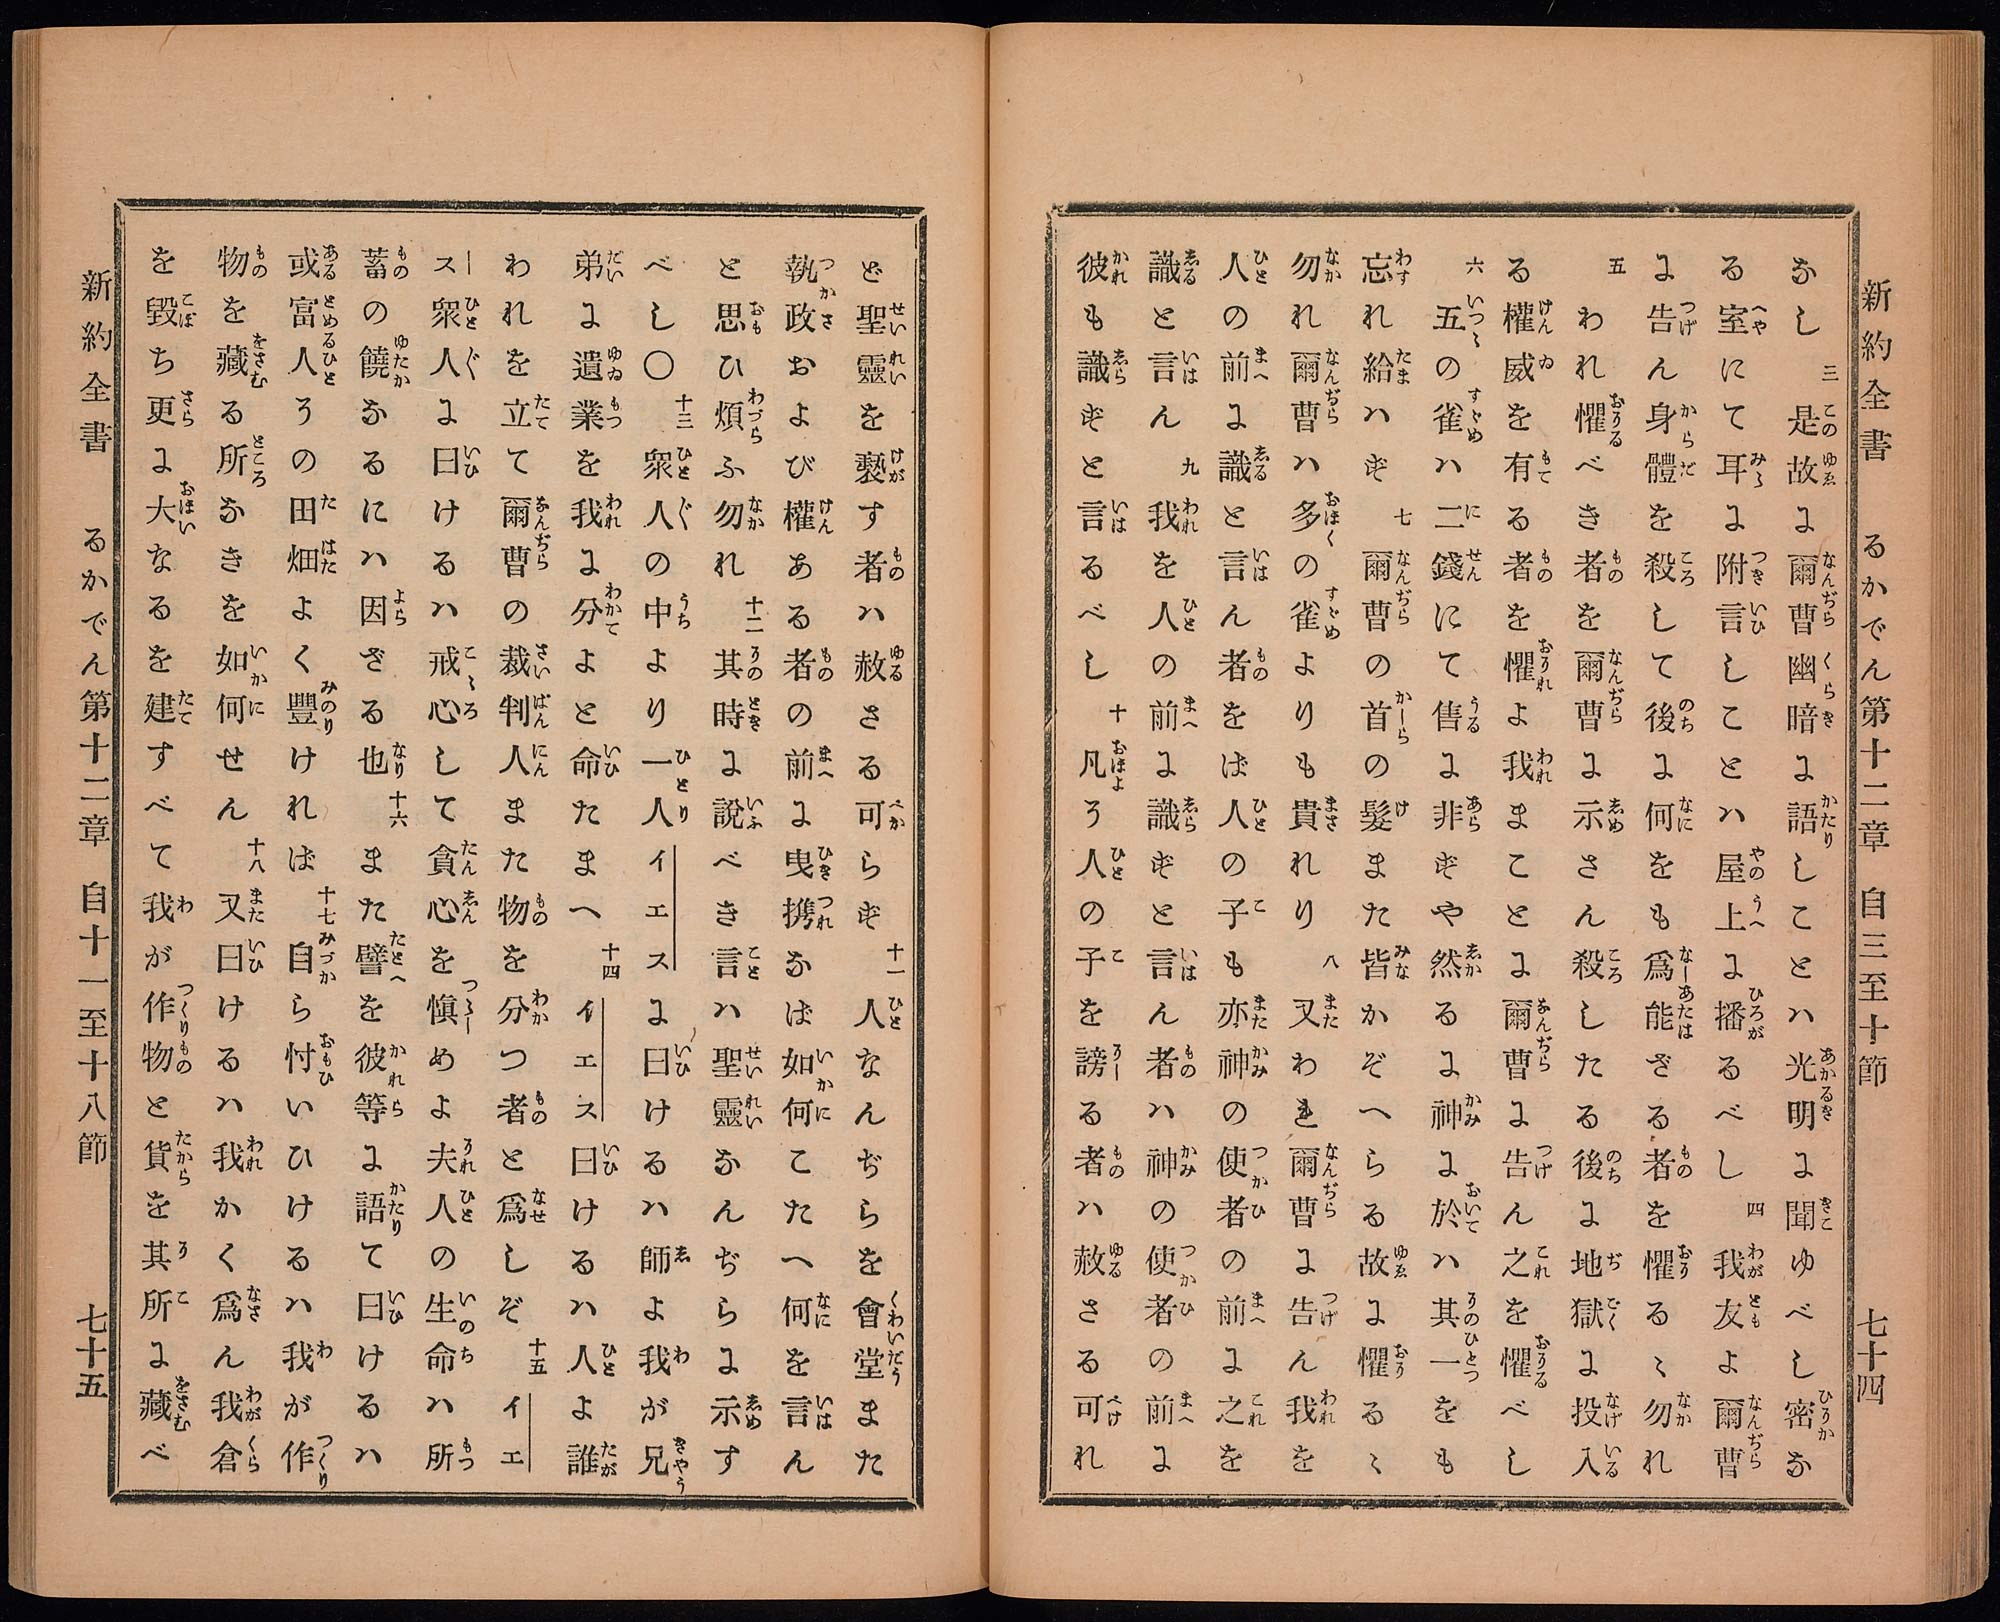 新約全書　るかでん第十二章　自三至十節　七十四
なし 三 是故に爾曹幽暗に語しことハ光明に聞ゆべし密な
る室にて耳に附言しことハ屋上に播るべし 四 我友よ爾曹
に告ん身體を殺して後に何をも爲能ざる者を懼るゝ勿れ
五 われ懼べき者を爾曹に示さん殺したる後に地獄に投入
る權威を有る者を懼よ我まことに爾曹に告ん之を懼べし
六 五の雀ハ二錢にて售に非ずや然るに神に於ハ其一をも
忘れ給ハず 七 爾曹の首の髮また皆かぞへらる故に懼るゝ
勿れ爾曹ハ多の雀よりも貴れり 八 又われ爾曹に告ん我を
人の前に識と言ん者をば人の子も亦神の使者の前に之を
識と言ん 九 我を人の前に識ずと言ん者ハ神の使者の前に
彼も識ずと言るべし 十 凡そ人の子を謗る者ハ赦さる可れ
ど聖靈を褻す者ハ赦さる可らず 十一 人なんぢらを會堂また
執政および權ある者の前に曳携なば如何こたへ何を言ん
と思ひ煩ふ勿れ 十二 其時に説べき言ハ聖靈なんぢらに示す
べし〇 十三 衆人の中より一人イエスに曰けるハ師よ我が兄
弟に遺業を我に分よと命たまへ 十四 イエス曰けるハ人よ誰
われを立て爾曹の裁判人また物を分つ者と爲しぞ 十五 イエ
ス衆人に曰けるハ戒心して貪心を愼めよ夫人の生命ハ所
蓄の饒なるにハ因ざる也 十六 また譬を彼等に語て曰けるハ
或富人その田畑よく豐ければ 十七 自ら忖いひけるハ我が作
物を藏る所なきを如何せん 十八 又曰けるハ我かく爲ん我倉
を毀ち更に大なるを建すべて我が作物と貨を其所に藏べ
新約全書　るかでん第十二章　自十一至十八節　七十五